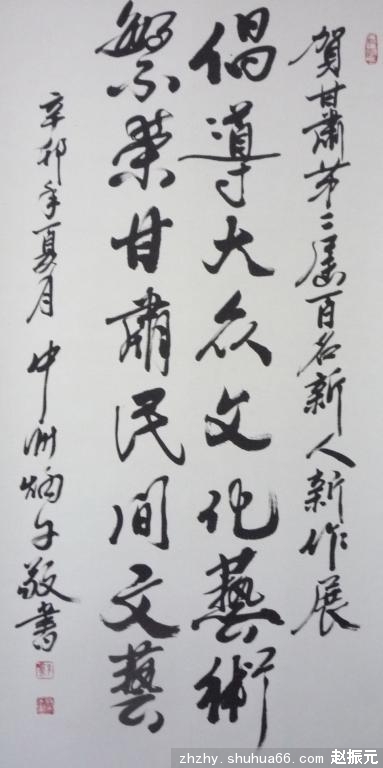 贺甘肃第二届百名新人新作展
倡导大众文化藝術
繁荣甘肃民间文藝
辛卯年夏月 中州炳午敬書
zhzhy.shuhua66.com 赵振元